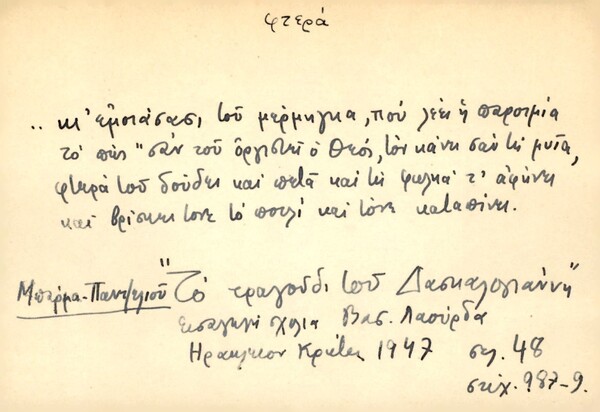 φτερά
.. κι' ἐμοιάσασι τοῦ μέρμηγκα, πού λέει ἡ παροιμία
τό πώς "σάν τοῦ ὀργιστεῖ ὁ Θεός, τόν κάνει σάν τή μυῖα,
φτερά τοῦ δούδει καί πετᾶ καί τή φωλιά τ' ἀφήνει
καί βρίσκει τονε τό πουλί καί τόνε καταπίνει.
Μπάρμπα-Παντζελιοῦ "Τό τραγούδι τοῦ Δασκαλογιάννη"
εισαγωγή σχόλια Βασ. Λαούρδα
Ηρακλειον Κρήτης 1947 σελ. 48
στίχ. 987-9.